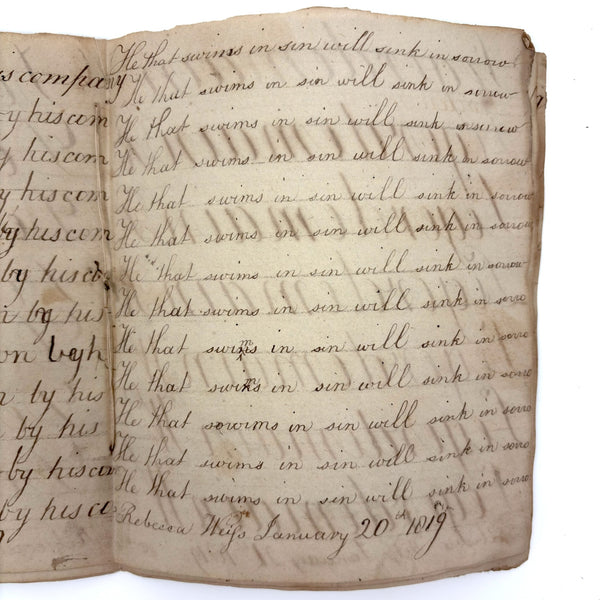 his company
y his com
y his com
y his com
by his com
by his co
n by his
on by h
n by his
n by his
by his com
by his co
He that swims in sin will sink in sorrow
He that swims in sin will sink in sorrow
He that swims in sin will sink in sorrow
He that swims in sin will sink in sorrow
He that swims in sin will sink in sorrow
He that swims in sin will sink in sorrow
He that swims in sin will sink in sorrow
He that swims in sin will sink in sorro
He that swims in sin will sink in sorro
He that swims in sin will sink in sorro
He that sowims in sin will sink in sorro
He that swims in sin will sink in sorro
He that swims in sin will sink in sorro
Rebecca Weiſs January 20th 1819